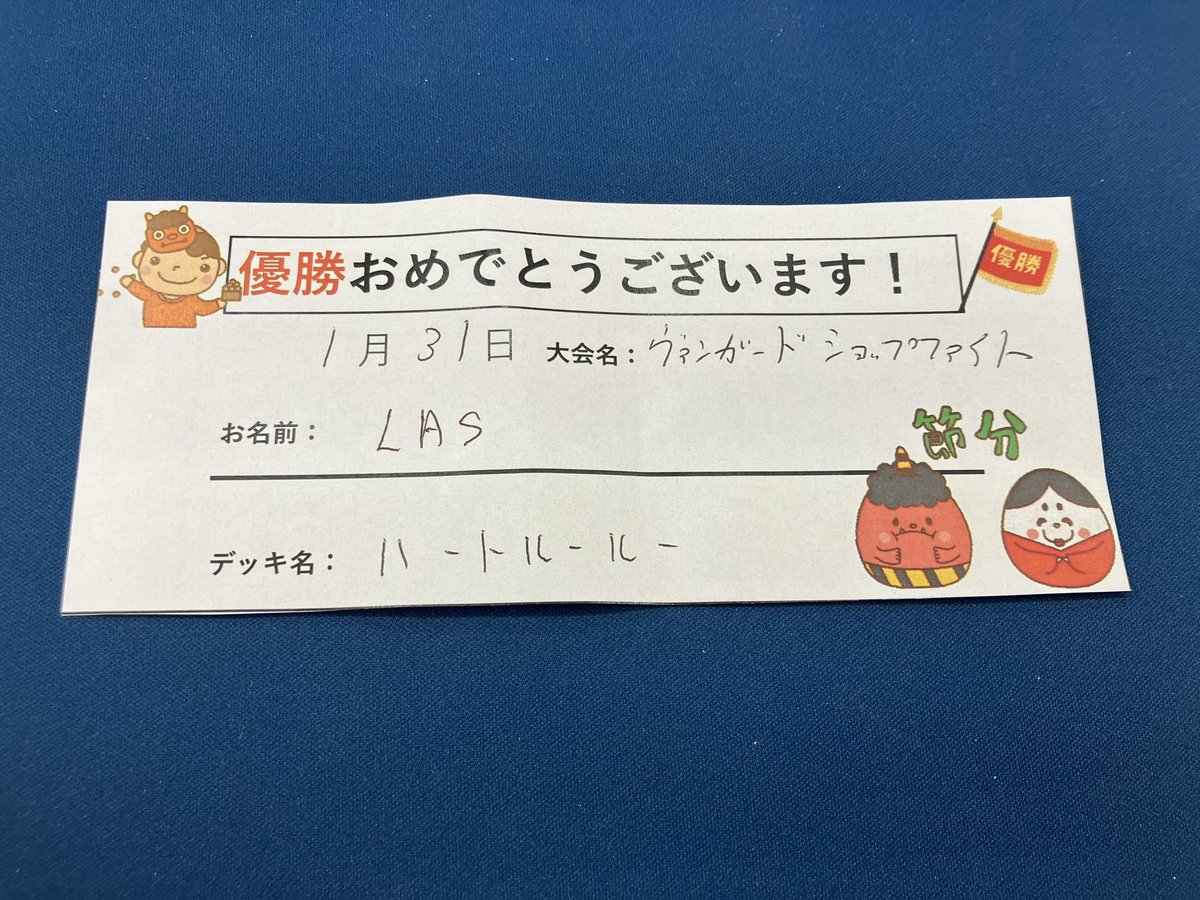 優勝おめでとうございます！
優勝
1月31日 大会名：ヴァンガードショップファイト
お名前： LAS
節分
デッキ名： ハートルールー